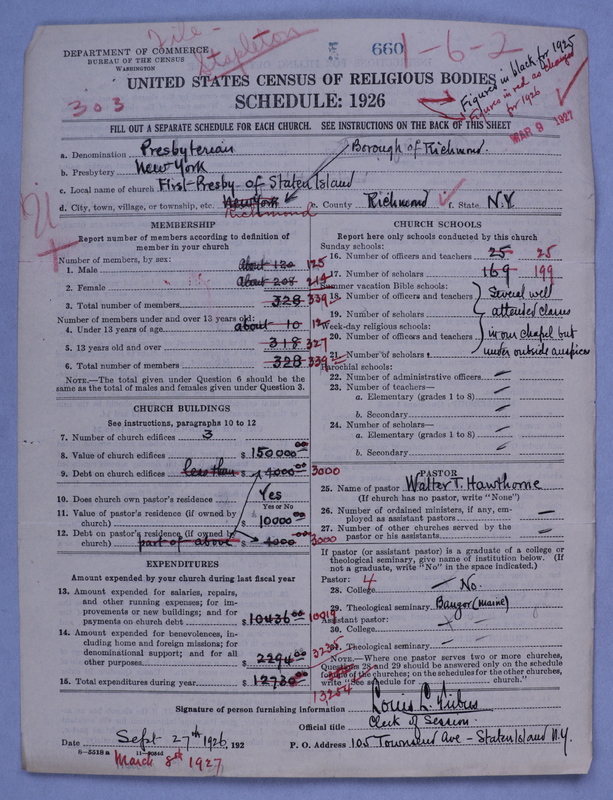 File -
Stapleton
DEPARTMENT OF COMMERCE
BUREAU OF THE CENSUS
WASHINGTON
660
1-6-2
UNITED STATES CENSUS OF RELIGIOUS BODIES
303
SCHEDULE: 1926
Figures in black for 1925
Figures in red as changed
for 1926
MAR 9 1927
FILL OUT A SEPARATE SCHEDULE FOR EACH CHURCH. SEE INSTRUCTIONS ON THE BACK OF THIS SHEET
a. Denomination Presbyterian Borough of Richmond.
b. Presbytery New York
c. Local name of church First-Presby. of Staten Island
d. City, town, village, or township, etc. New York e. County Richmond f. State N.Y.
Richmond
MEMBERSHIP
Report number of members according to definition of
member in your church
Number of members, by sex:
1. Male about 120 125
2. Female about 208 214
3. Total number of members 328 339
Number of members under and over 13 years old:
4. Under 13 years of age about 10 12
5. 13 years old and over 318 327
6. Total number of members 328 339
NOTE.—The total given under Question 6 should be
the same as the total of males and females given under Question 3.
CHURCH BUILDINGS
See instructions, paragraphs 10 to 12
7. Number of church edifices 3
8. Value of church edifices $ 150000.00
9. Debt on church edifices less than $ 4000.00 3000
10. Does church own pastor's residence Yes
Yes or No
11. Value of pastor's residence (if owned by
church) $ 10000.00
12. Debt on pastor's residence (if owned by
church) part of above $ 4000.00 3000
EXPENDITURES
Amount expended by your church during last fiscal year
13. Amount expended for salaries, repairs,
and other running expenses; for im-
provements or new buildings; and for
payments on church debt $ 10436.00 10019
14. Amount expended for benevolences, in-
cluding home and foreign missions; for
denominational support; and for all
other purposes $ 2294.00
15. Total expenditures during year $ 12730.00
13254
CHURCH SCHOOLS
Report here only schools conducted by this church
Sunday schools:
16. Number of officers and teachers 25 25
17. Number of scholars 169 199
Summer vacation Bible schools:
18. Number of officers and teachers Several well
19. Number of scholars attended classes
Week-day religious schools:
20. Number of officers and teachers in our chapel but
21. Number of scholars under outside auspices
Parochial schools:
22. Number of administrative officers
23. Number of teachers—
a. Elementary (grades 1 to 8)
b. Secondary
24. Number of scholars—
a. Elementary (grades 1 to 8)
b. Secondary
PASTOR
25. Name of pastor Walter T. Hawthorne
(If church has no pastor, write "None")
26. Number of ordained ministers, if any, em-
ployed as assistant pastors —
27. Number of other churches served by the
pastor or his assistants —
If pastor (or assistant pastor) is a graduate of a college or
theological seminary, give name of institution below. (If
not a graduate, write "No" in the space indicated.)
Pastor: 4
28. College — No.
29. Theological seminary Bangor (Maine)
Assistant pastor:
30. College
31. Theological seminary
NOTE.—Where one pastor serves two or more churches,
Questions 28 and 29 should be answered only on the schedule
for one of the churches; on the schedules for the other churches,
write "See schedule for church."
Signature of person furnishing information
Official title Clerk of Session.
Date Sept. 27th 1926, 192 P. O. Address 105 Townsend Ave - Staten Island N.Y.
8-5518a
March 8th 1927